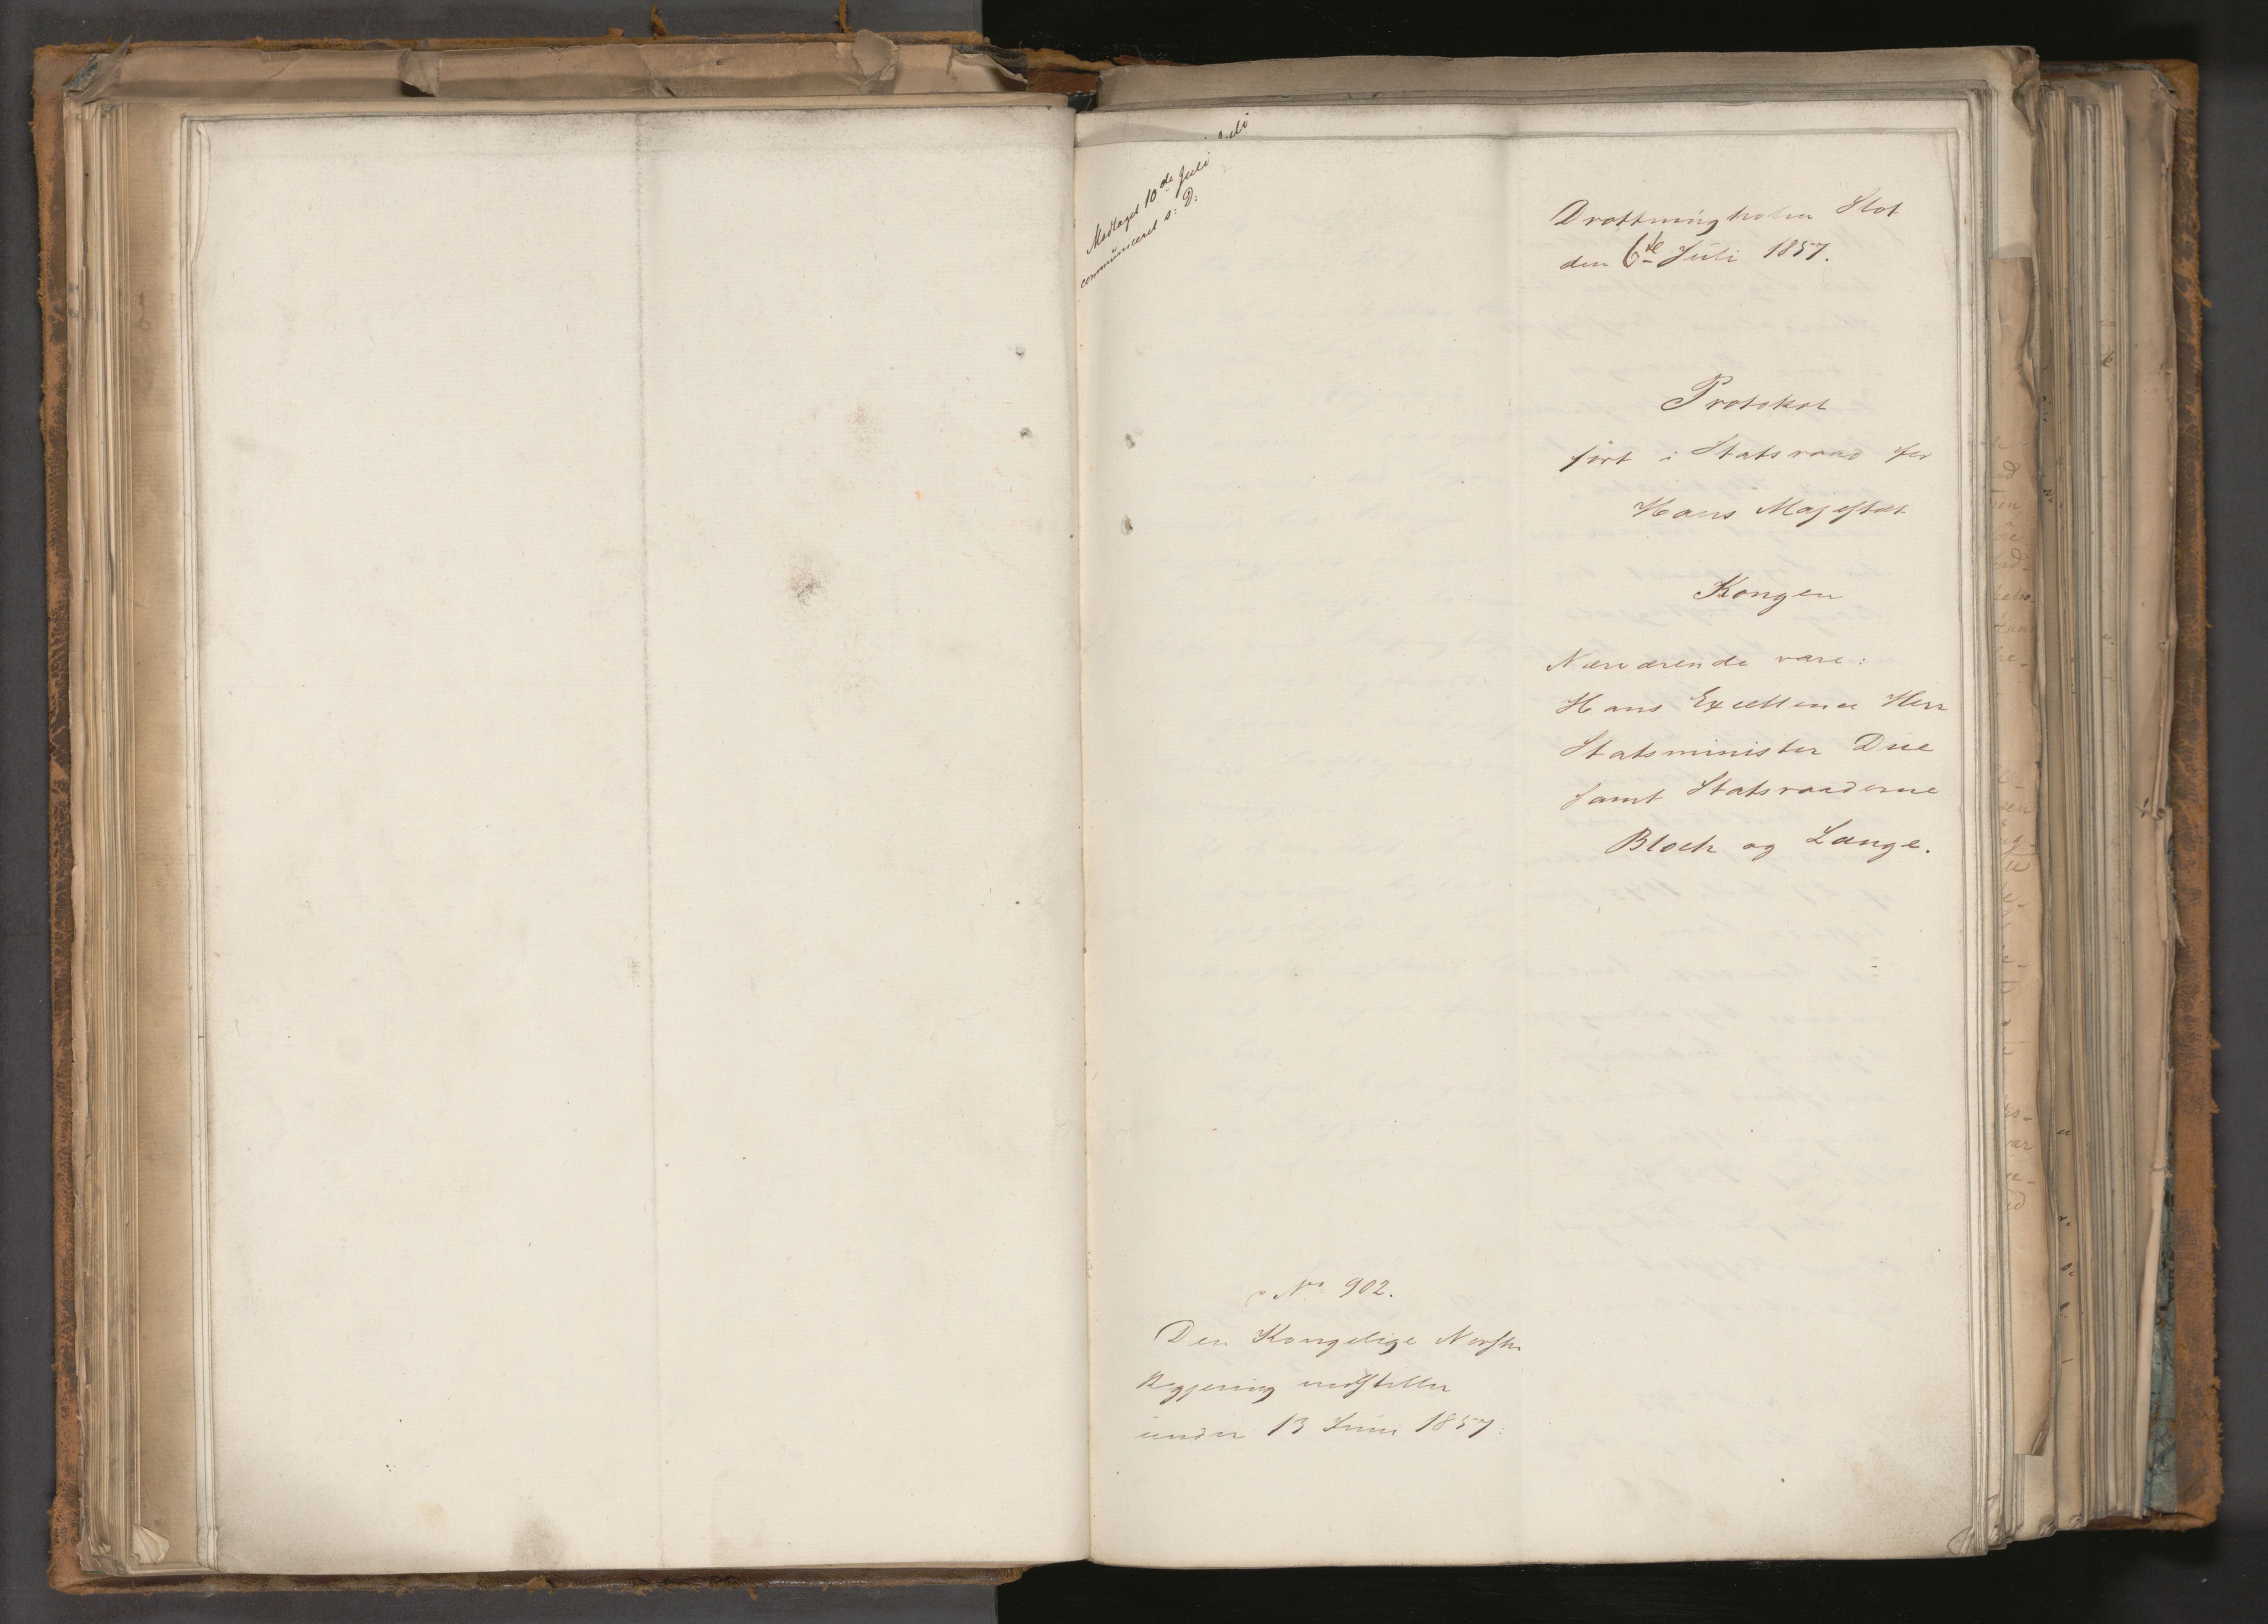 Modtaget 10de Juli
communiceret s: D:
Drottningholm Slot
den 6te Juli 1857.
Protokol
ført i Statsraad for
Hans Majestæt
Kongen
Nærværende vare:
Hans Excellence Herr
Statsminister Due
samt Statsraaderne
Bloch og Lange.
No 902.
Den Kongelige Norske
Regjering indstiller
under 13 Juni 1857: